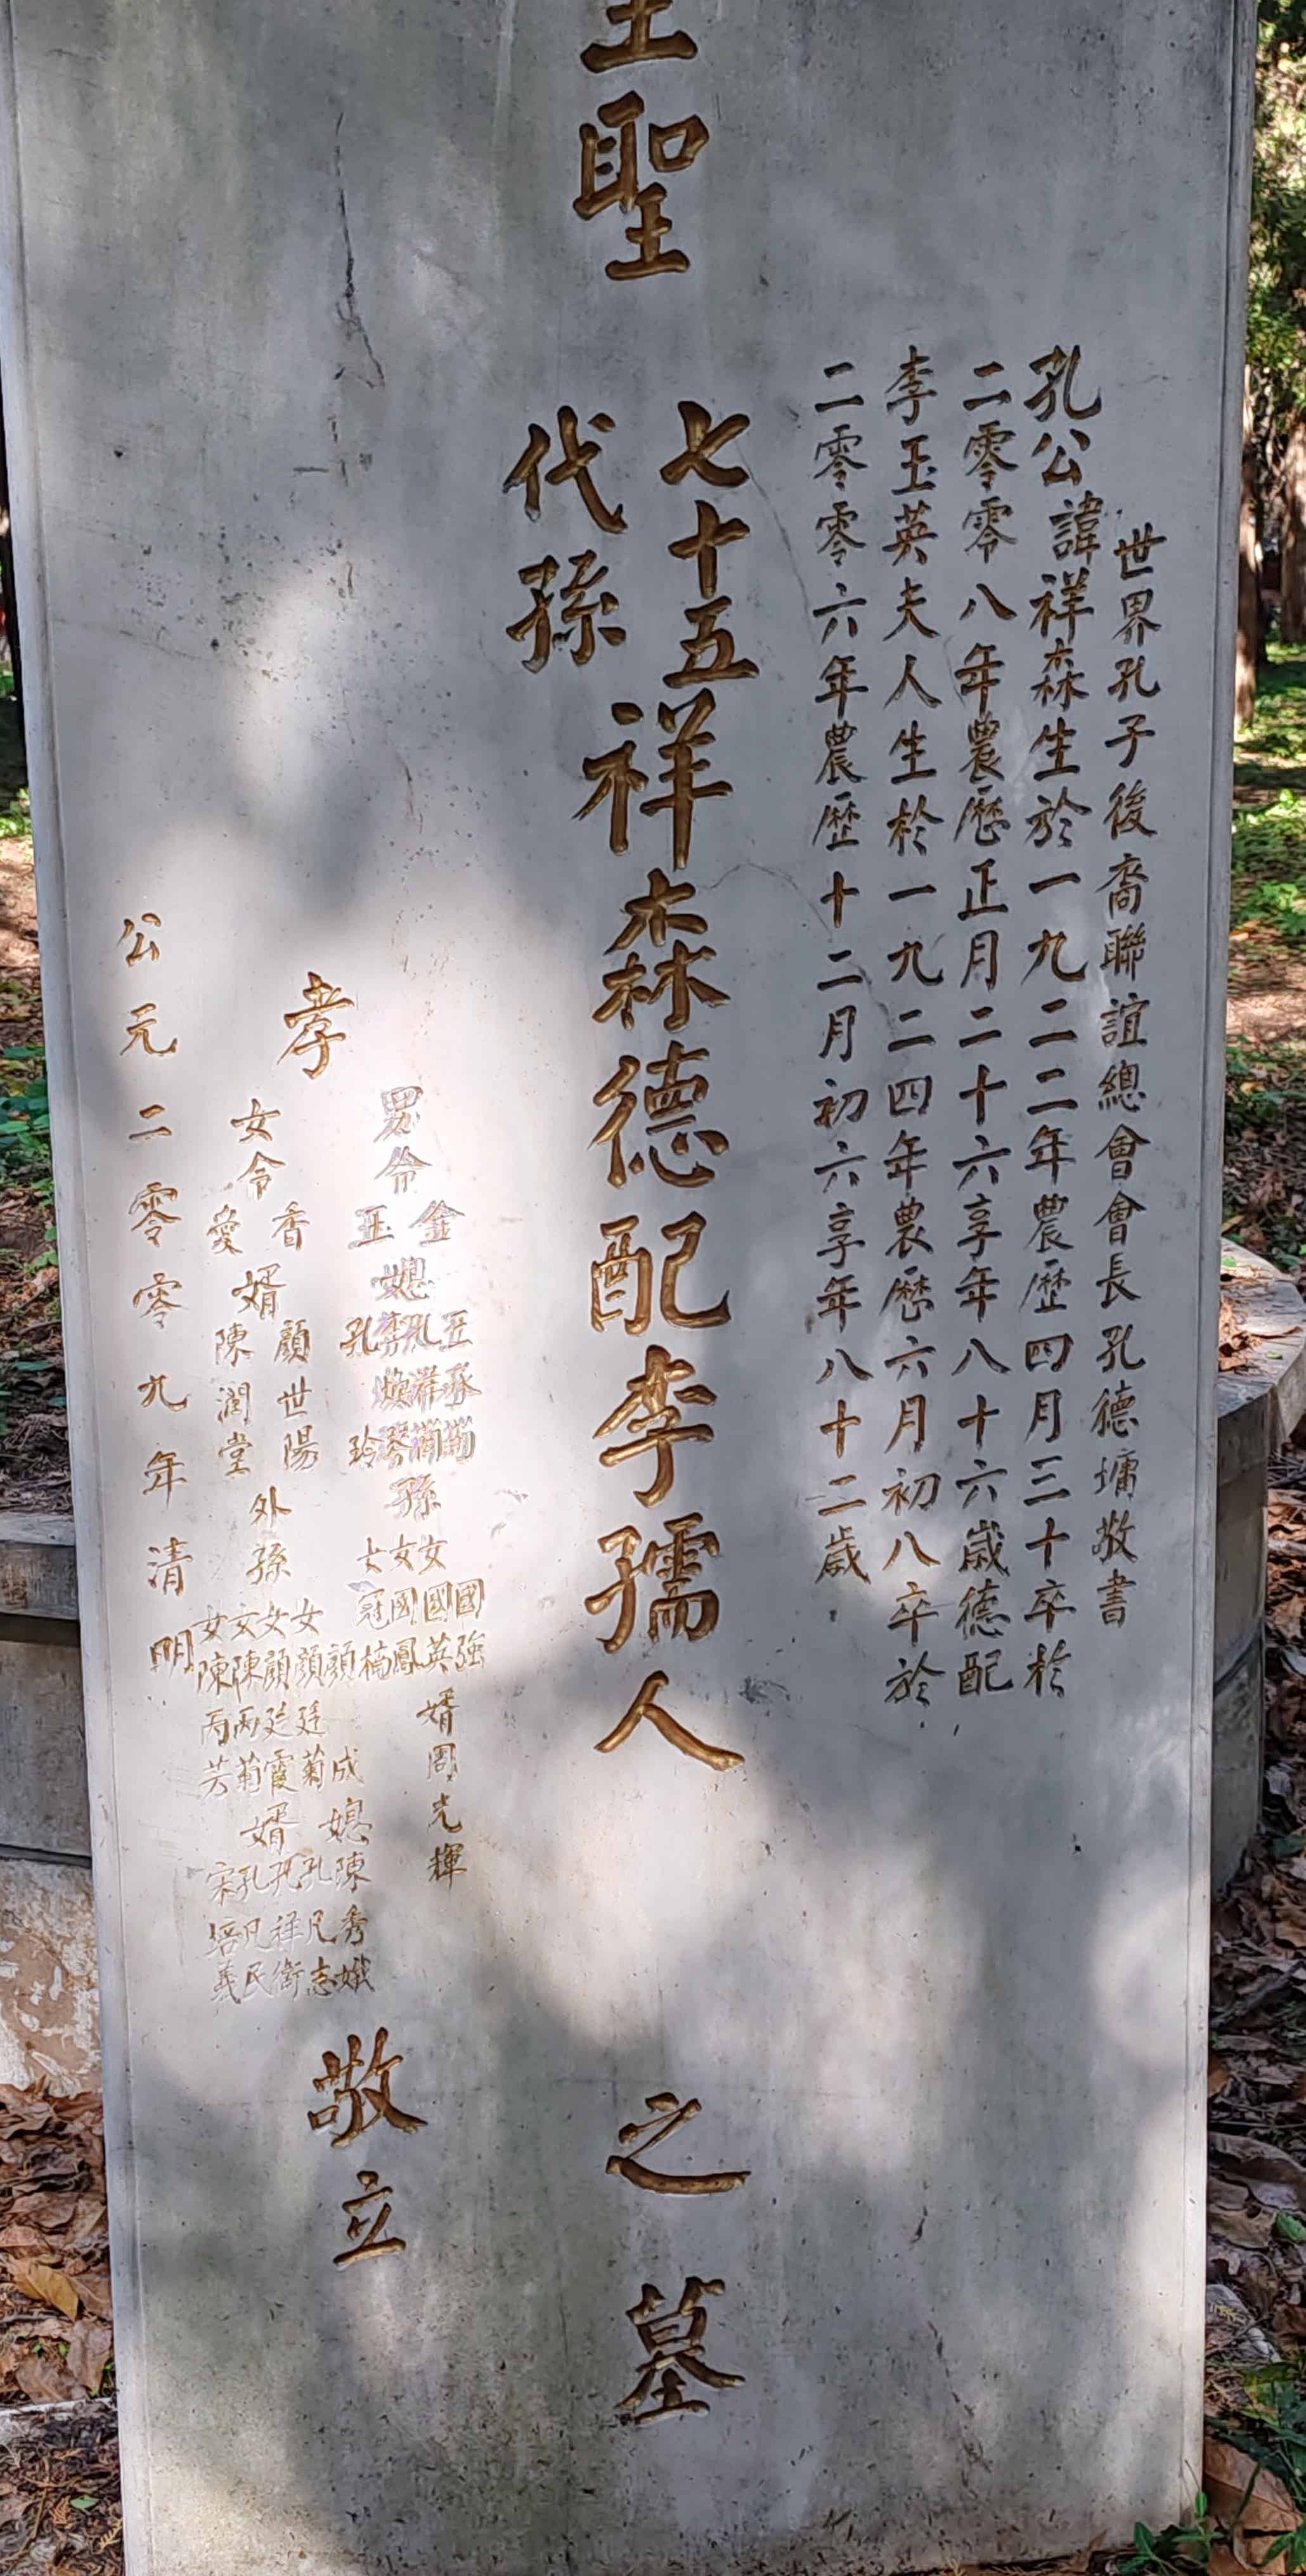 世界孔子後裔聯誼總會會長孔德墉敬書
孔公諱祥森生於一九二二年農歷四月三十卒於
二零零八年農歷正月二十六享年八十六歲德配
李玉英夫人生於一九二四年農歷六月初八卒於
二零零六年農歷十二月初六享年八十二歲
聖
七十五
代孫
祥森德配李孺人之墓
孝
男令
金
玉
媳
孫
女女女
國強
國英
國鳳
冠楠
婿周光輝
女令
香
愛
婿
顏世陽
陳潤堂
外孫
女女女女
顏成
顏廷菊
顏廷霞
陳丙菊
陳丙芳
媳
陳秀娥
婿
孔凡志
孔祥衛
孔凡民
宋培義
敬立
公元二零零九年清明